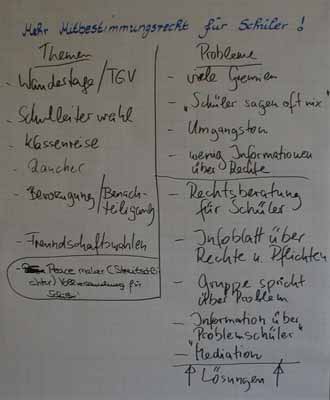 Mehr Mitbestimmungsrecht für Schüler !
Themen
- Wandertage/TGV
- Schulleiterwahl
- Klassenreise
- Raucher
- Bevorzugung/Benach-
teiligung
- Freundschaftszahlen
- Peace maker (Streitsch
für
Probleme
- viele Gremien
- "Schüler sagen oft nix"
- Umgangston
- wenig Informationen
über Rechte
- Rechtsberatung
für Schüler
- Infoblatt über
Rechte u. Pflichten
- Gruppe spricht
über Problem
- Information über
"Problemschüler"
- "Mediation
↑ Lösungen ↑